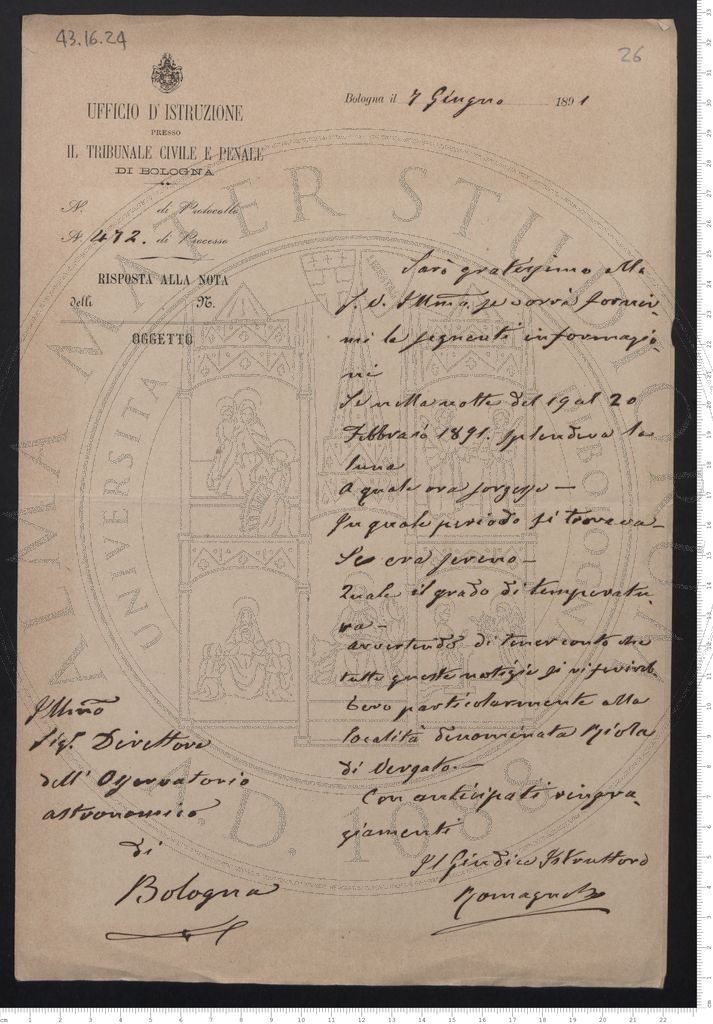 43.16.24
26
UFFICIO D'ISTRUZIONE
PRESSO
IL TRIBUNALE CIVILE E PENALE
DI BOLOGNA
Bologna il 7 Giugno 1891
N. di Protocollo
N. 472. di Processo
RISPOSTA ALLA NOTA
delli N.
OGGETTO
Sarò gratissimo alla
S. V. Illma. se vorrà fornir-
mi le seguenti informazio-
ni
Se nella notte del 19 al 20
Febbraio 1891. splendeva la
luna
A quale ora sorgesse —
In quale periodo si trovava —
Se era sereno —
Quale il grado di temperatu-
ra —
avvertendo di tener conto che
tutte queste notizie si riferireb-
bero particolarmente alla
località denominata Riola
di Vergato. —
Con anticipati ringra-
ziamenti
Il Giudice Istruttore
Romagnoli
Illmo
Sigr. Direttore
dell' Osservatorio
astronomico
di
Bologna
ALMA MATER STUDIORUM
UNIVERSITA DI BOLOGNA
A.D. 1088